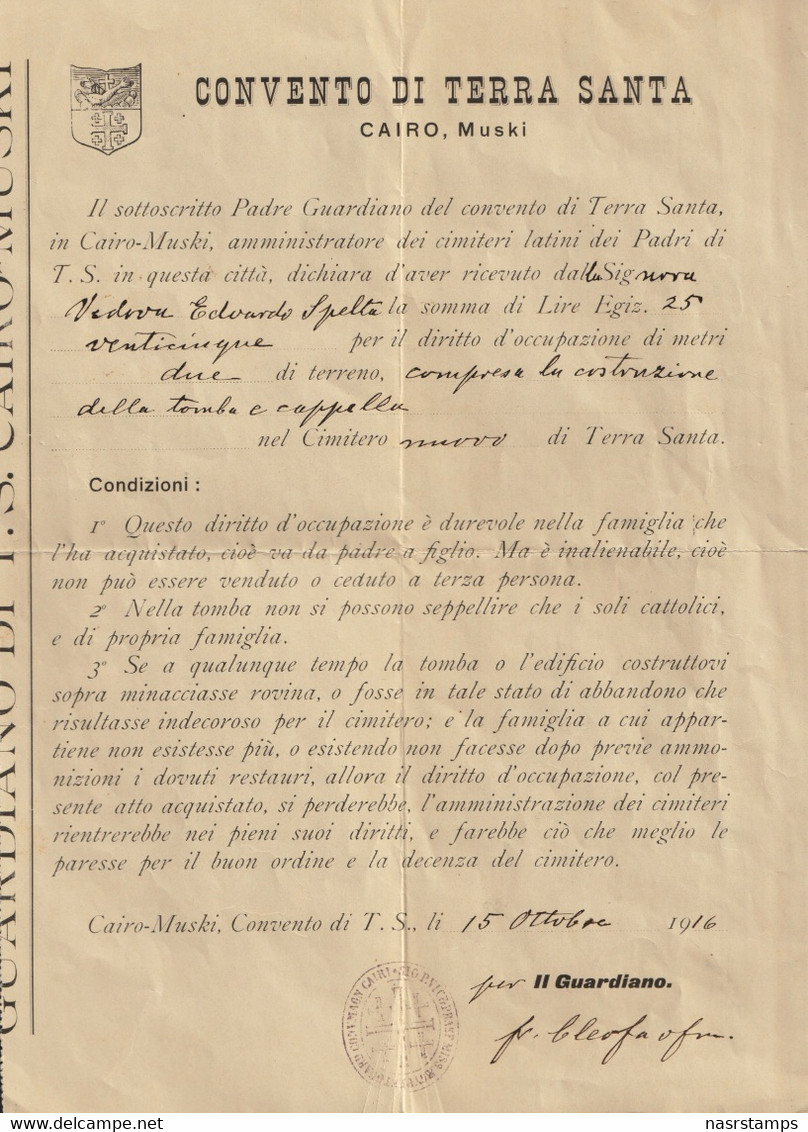 CONVENTO DI TERRA SANTA
CAIRO, Muski
Il sottoscritto Padre Guardiano del convento di Terra Santa,
in Cairo-Muski, amministratore dei cimiteri latini dei Padri di
T. S. in questa città, dichiara d'aver ricevuto dalla Signora
Vedova Edoardo Spelta la somma di Lire Egiz. 25
venticinque per il diritto d'occupazione di metri
due di terreno, compresa la costruzione
della tomba e cappella
nel Cimitero nuovo di Terra Santa.
Condizioni :
1º Questo diritto d'occupazione è durevole nella famiglia che
l'ha acquistato, cioè va da padre a figlio. Ma è inalienabile, cioè
non può essere venduto o ceduto a terza persona.
2º Nella tomba non si possono seppellire che i soli cattolici,
e di propria famiglia.
3º Se a qualunque tempo la tomba o l'edificio costruttovi
sopra minacciasse rovina, o fosse in tale stato di abbandono che
risultasse indecoroso per il cimitero; e la famiglia a cui appar-
tiene non esistesse più, o esistendo non facesse dopo previe ammo-
nizioni i dovuti restauri, allora il diritto d'occupazione, col pre-
sente atto acquistato, si perderebbe, l'amministrazione dei cimiteri
rientrerebbe nei pieni suoi diritti, e farebbe ciò che meglio le
paresse per il buon ordine e la decenza del cimitero.
Cairo-Muski, Convento di T. S., li 15 Ottobre 1916
per Il Guardiano.
fr. Cleofa ofm.
GUARDIANO DI T. S. CAIRO-MUSKI
delcampe.net
nasrstamps